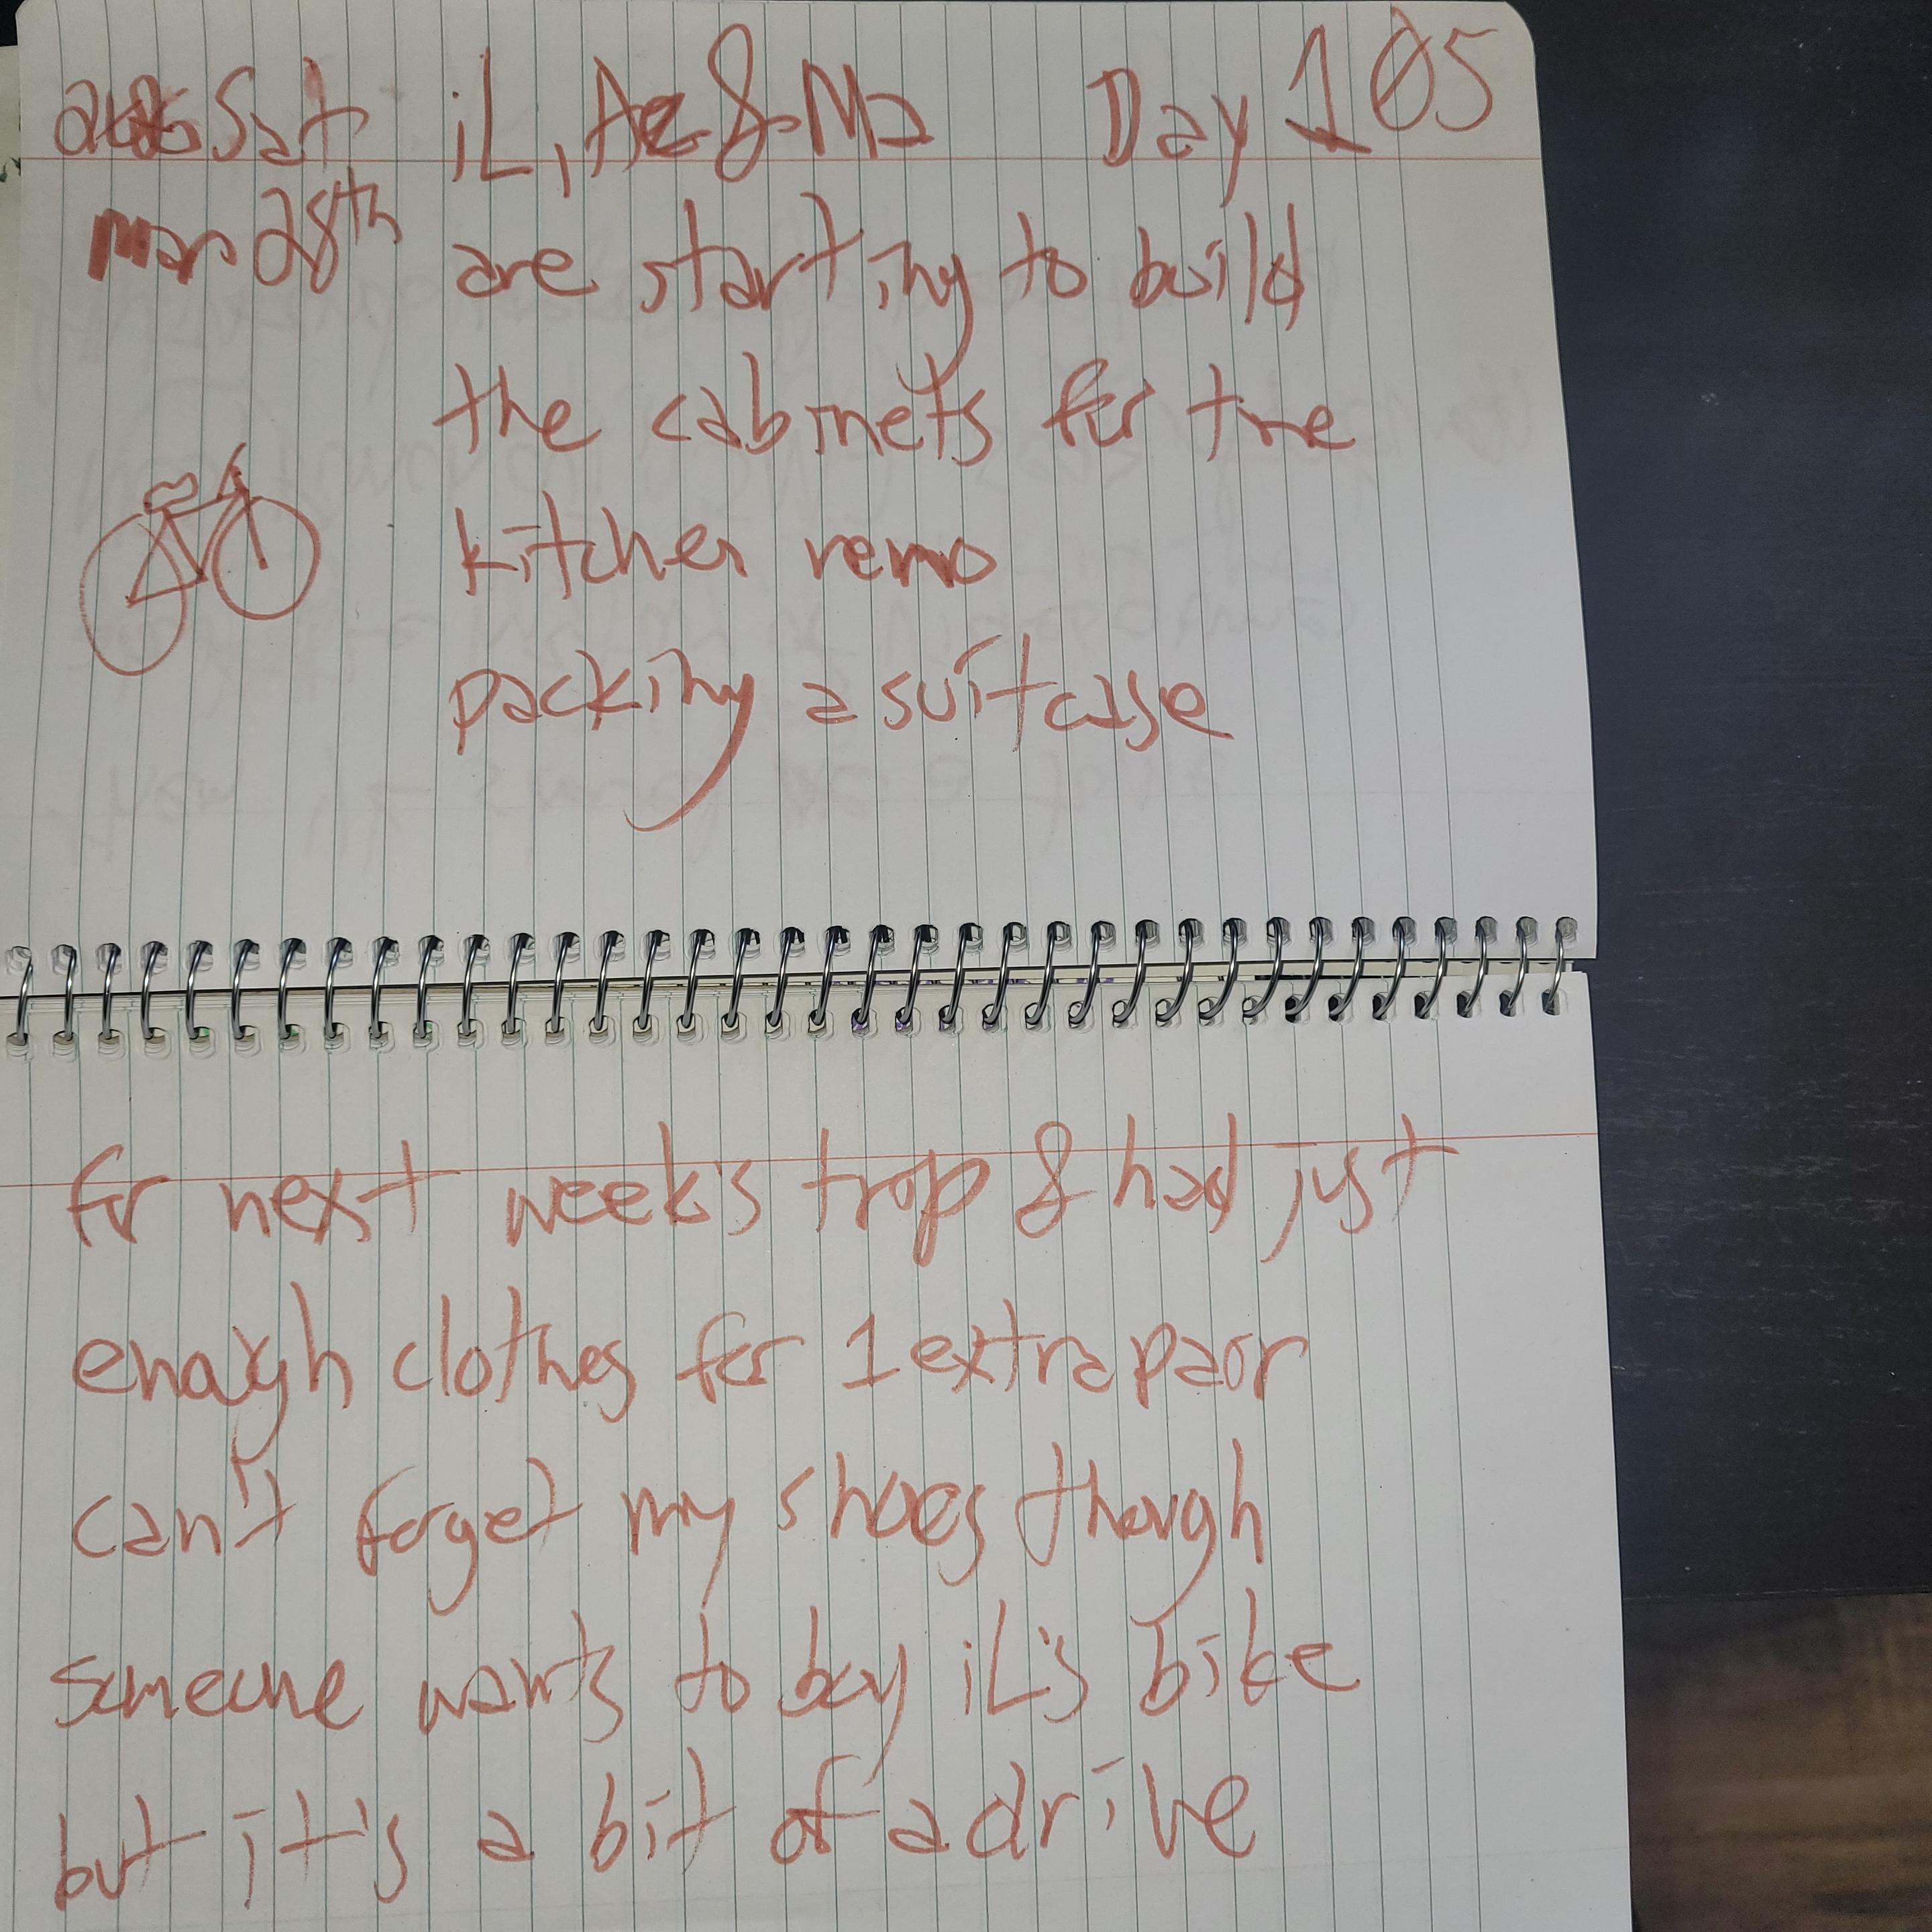 Sat iL, Ae & Ma Day 105
Mar 28th are starting to build
the cabinets for the
kitchen reno
packing a suitcase
for next week's trip & had just
enough clothes for 1 extra pair
can't forget my shoes though
someone wants to buy iL's bike
but it's a bit of a drive